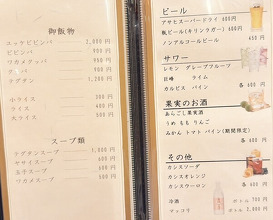 御飯物
ユッケビビンバ 1,000円
ビビンバ 900円
ワカメクッパ 1,100円
クッパ 900円
テグタン 1,200円
小ライス 300円
ライス 400円
大ライス 500円
スープ類
テグタンスープ 1,000円
ヤサイスープ 600円
玉子スープ 600円
ワカメスープ 600円
ビール
アサヒスーパードライ 600円
瓶ビール(キリンラガー) 600円
ノンアルコールビール
450円
サワー
レモン グレープフルーツ
巨峰 ライム
カルピス パイン
各 400円
果実のお酒
あらごし果実酒
うめ もも りんご
みかん トマト パイン(期間限定)
各 600円
その他
カシスソーダ
カシスオレンジ
カシスウーロン 各 400円
冷酒 ボトル 700円
マッコリ ボトル